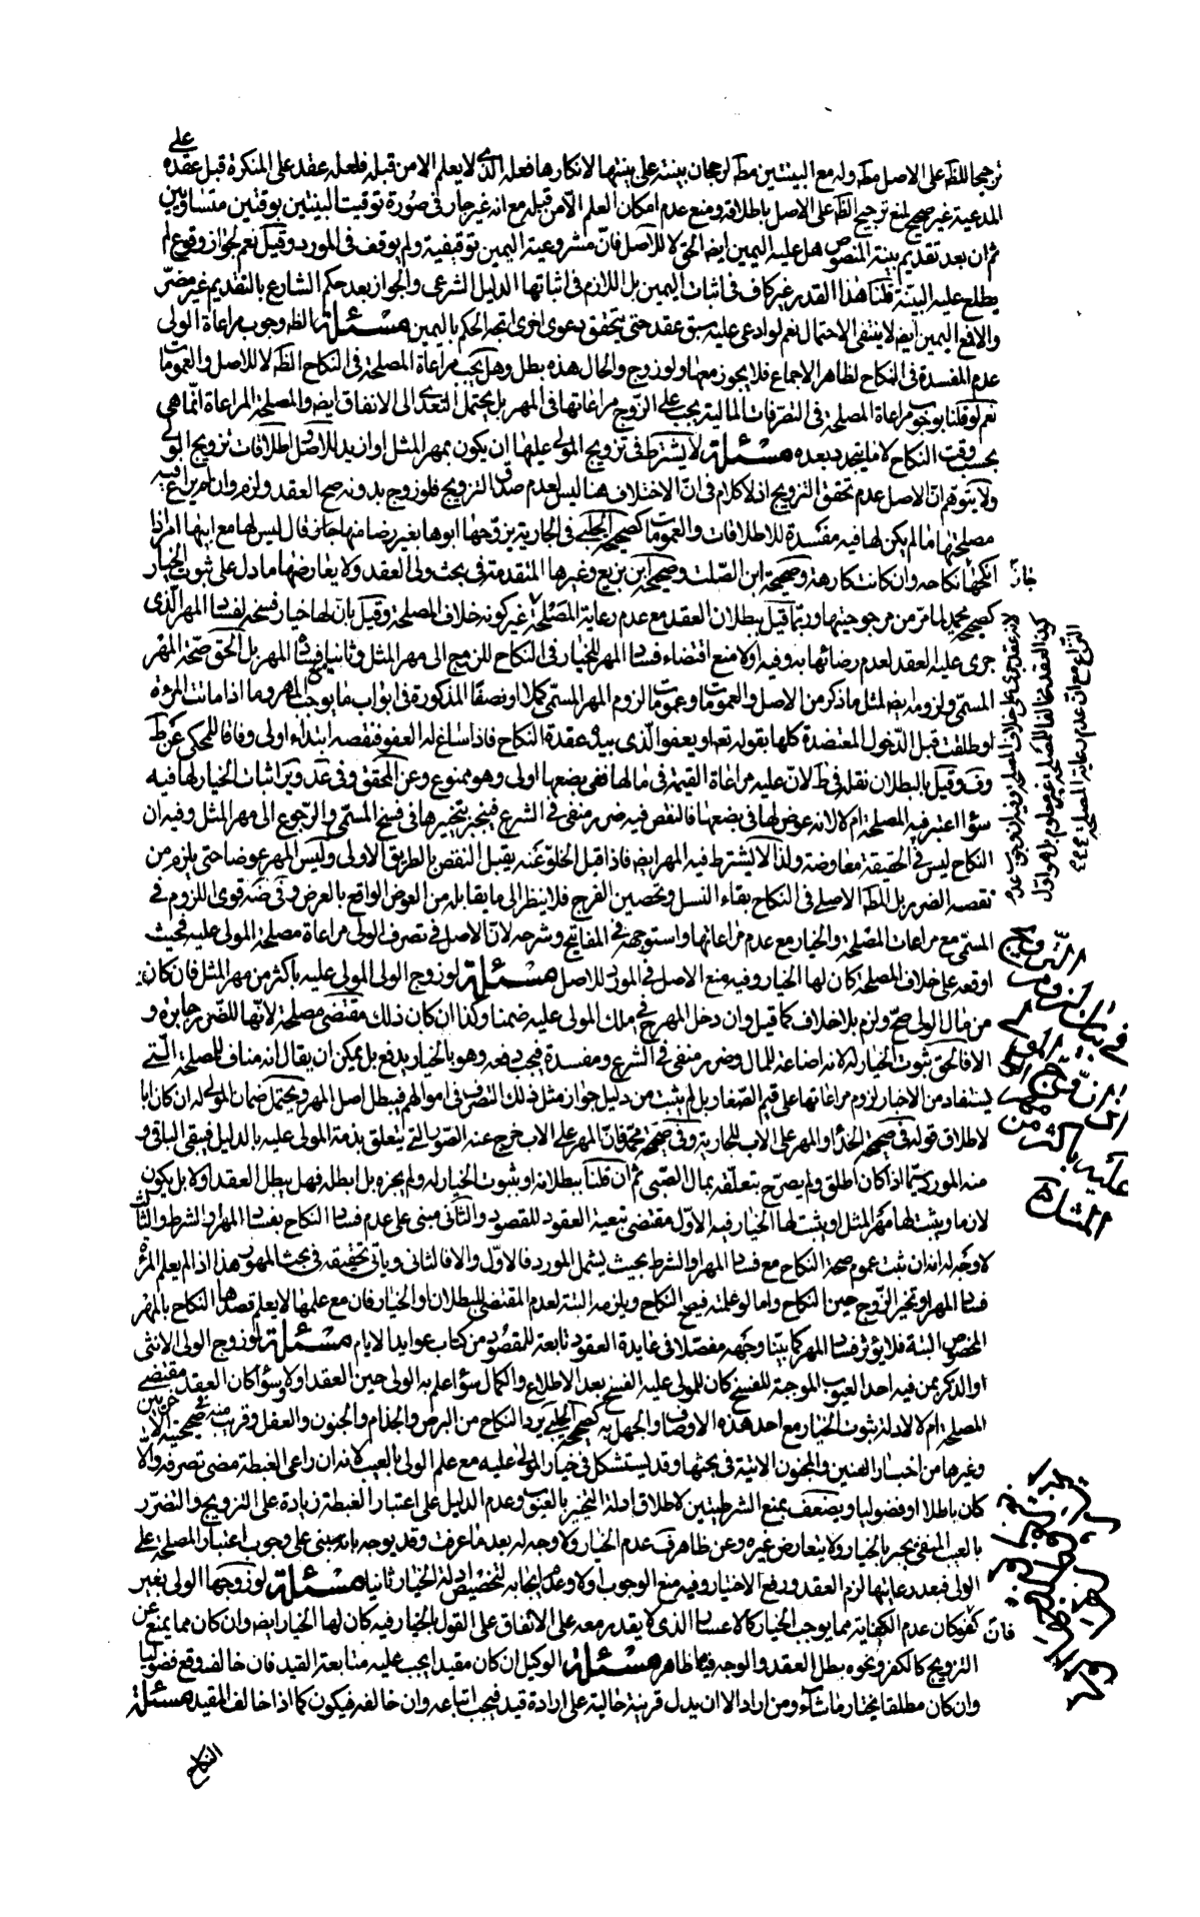 ترجيحا للظ على الاصل مط وله مع البينتين مط لرجحان بينته على بينتها لانكارها فعله الذى لا يعلم الا من قبله فلعله عقد على المنكرة قبل عقده على
المدعية غير صحيح لمنع ترجيح الظ على الاصل باطلاقه ومنع عدم امكان العلم الا من قبله مع انه غير جار فى صورة توقيت البينتين بوقتين متساويين
ثم ان بعد تقديم بينة المنصوص هل عليه اليمين ايض الحق لا للاصل فان مشروعية اليمين توقيفية ولم يوقف فى المورد وقيل نعم لجواز وقوع ما لم
يطلع عليه البينة قلنا هذا القدر غير كاف فى اثبات اليمين بل اللازم فى اثباتها الدليل الشرعى والجواز بعد حكم الشارع بالتقديم غير مضر
والا فمع اليمين ايض لا ينتفى الاحتمال نعم لو ادعى عليه سبق عقد حتى يتحقق دعوى اخرى اتجه الحكم باليمين مسئلة الظ وجوب مراعاة الولى
عدم المفسدة فى النكاح لظاهر الاجماع فلا يجوز معها ولو زوج والحال هذه بطل وهل يجب مراعاة المصلحة فى النكاح الظ لا للاصل والعمومات
نعم لو قلنا بوجوب مراعاة المصلحة فى التصرفات المالية يجب على الزوج مراعاتها فى المهر بل يحتمل التعدى الى الانفاق ايض والمصلحة المراعاة انما هى
بحسب وقت النكاح لا ما يتجدد بعده مسئلة لا يشترط فى تزويج المولى عليها ان يكون بمهر المثل او ازيد للاصل واطلاقات تزويج الولى
ولا يتوهم ان الاصل عدم تحقق التزويج اذ لا كلام فى ان الاختلاف هنا ليس لعدم صدق التزويج فلو زوج بدونه صح العقد ولزم وان لم يراع فيه
مصلحتها ما لم يكن لها فيه مفسدة للاطلاقات والعمومات كصحيحة الحلبى فى الجارية يزوجها ابوها بغير رضا منها جائز قال ليس لها مع ابيها امر اذا
انكحها جاز نكاحه وان كانت كارهة وصحيحة ابن الصلت وصحيحة ابن بزيع وغيرها المتقدمة فى بحث ولى العقد ولا يعارضها ما دل على ثبوت الخيار
كصحيحة محمد لما مر من مرجوحيتها وربما قيل ببطلان العقد مع عدم رعاية المصلحة غير كونه خلاف المصلحة وقيل بان لها خيار فسخه لفساد المهر الذى
جرى عليه العقد لعدم رضائها به وفيه اولا منع اقتضاء فساد المهر للخيار فى النكاح للزوج الى مهر المثل وثانيا فساد المهر بل الحق صحة المهر
المسمى ولزومه ايض لمثل ما ذكر من الاصل والعمومات وعمومات لزوم المهر المسمى كملا او نصفا المذكورة فى ابواب ما يوجب المهر وما اذا ماتت المرءة
او طلقت قبل الدخول المعتضدة كلها بقوله تعه او يعفو الذى بيده عقدة النكاح فاذا ساغ له العفو فنقصه ابتداء اولى وفاقا للمحكى عن ط
وف وقيل بالبطلان نقله فى ط لان عليه مراعاة القيمة فى مالها ففى بضعها اولى وهو ممنوع وعن المحقق وفى عد وير اثبات الخيار لها فيه
سواء اعتبر فيه المصلحة ام لا لانه عوض لها فى بضعها فالنقص فيه ضرر منفى فى الشرع فينجبر بتخييرها فى فسخ المسمى والرجوع الى مهر المثل وفيه ان
النكاح ليس فى الحقيقة معاوضة ولذا لا يشترط فيه المهر ايض فاذا قبل الخلو عنه يقبل النقص بالطريق الاولى وليس المهر عوضا حتى يلزم من
نقصه الضرر بل الغ الاصلى فى النكاح بقاء النسل وتحصين الفرج فلا ينظر الى ما يقابله من العوض الواقع بالعرض وفى ضه قوى اللزوم فى
المسمى مع مراعات المصلحة والخيار مع عدم مراعاتها واستوجهه فى المفاتيح وشرحه لان الاصل فى تصرف الولى مراعاة مصلحة المولى عليه فحيث
اوقعه على خلاف المصلحة كان لها الخيار وفيه منع الاصل فى المورد للاصل مسئلة لو زوج الولى المولى عليه باكثر من مهر المثل فان كان
من مال الولى صح ولزم بلا خلاف كما قيل وان دخل المهر فى ملك المولى عليه ضمنا وكذا ان كان ذلك مقتضى مصلحة لانها للضرر جابرة و
الا فالحق ثبوت الخيار له لانه اضاعة للمال وضرر منفى فى الشرع ومفسدة فيجب دفعه وهو بالخيار يدفع بل يمكن ان يقال انه مناف للمصلحة التى
يستفاد من الاخبار لزوم مراعاتها على قيم الصغار بل لم يثبت من دليل جواز مثل ذلك التصرف فى اموالهم فيبطل اصل المهر ويحتمل ضمان المولى له ان كان ابا
لاطلاق قوله فى صحيحة الحذاء والمهر على الاب للجارية وفى صحيحة محمد فان المهر على الاب خرج عنه الصور التى يتعلق بذمة المولى عليه بالدليل فيبقى الباقى و
منه المورد سيما اذا كان اطلق ولم يصرح بتعلقه بمال الصبى ثم ان قلنا ببطلانه او بثبوت الخيار له ولم يجزه بل ابطله فهل يبطل العقد او لا بل يكون
لازما ويثبت لها مهر المثل او يثبت لها الخيار فيه الاول مقتضى تبعية العقود للقصود والثانى مبنى على عدم فساد النكاح بفساد المهر او الشرط والثالث
لا وجه له انه ان ثبت عموم صحة النكاح مع فساد المهر او الشرط بحيث يشمل المورد فالاول والا فالثانى ويأتى تحقيقه فى بحث المهور هذا اذا لم يعلم المرءة
فساد المهر او تخير الزوج حين النكاح واما لو علمته فيصح النكاح ويلزمه البتة لعدم المقتضى للبطلان او الخيار فان مع علمها لا يعلم قصدهما النكاح بالمهر
المخصوص البتة فلا يؤثر فساد المهر كما بينا وجهه مفصلا فى عايدة العقود تابعة للمقصود من كتاب عوايد الايام مسئلة لو زوج الولى الانثى
او الذكر بمن فيه احد العيوب الموجبة للفسخ كان للمولى عليه الفسخ بعد الاطلاع والكمال سواء علم به الولى حين العقد او لا وسواء كان العقد مقتضى
المصلحة ام لا لادلة ثبوت الخيار مع احد هذه الاوصاف والجهل به كصحيحة الحلبى يرد النكاح من البرص والجذام والجنون والعفل وقرب منه صحيحته الاخريين
وغيرها من اخبار العنين والمجنون الاتية فى بحثها وقد يستشكل فى خيار المولى عليه مع علم الولى بالعيب لانه ان راعى الغبطة مضى تصرفه والا
كان باطلا او فضوليا ويضعف بمنع الشرطيتين لاطلاق ادلة التخيير بالعيوب وعدم الدليل على اعتبار الغبطة زيادة على التزويج والتضرر
بالعيب المنفى يجبر بالخيار ولا يتعارض غيره وعن ظاهر ف عدم الخيار ولا وجه له بعد ما عرفت وقد يوجه بانه مبنى على وجوب اعتبار المصلحة على
الولى فبعد رعايتها لزم العقد ورفع الاختيار وفيه منع الوجوب اولا وعدم ايجابه لتخصيص ادلة الخيار ثانيا مسئلة لو زوجها الولى بغير
كفو فان كان عدم الكفاية مما يوجب الخيار كالاعسار الذى لا يقدر معه على الانفاق على القول بالخيار فيه كان لها الخيار ايض وان كان مما يمنع عن
التزويج كالكفر ونحوه بطل العقد والوجه فيهما ظاهر مسئلة الوكيل ان كان مقيدا يجب عليه متابعة القيد فان خالف وقع فضوليا
وان كان مطلقا يختار ما شاء ومن اراد الا ان يدل قرينة حالية على ارادة قيد فيجب اتباعه وان خالفه فيكون كما اذا خالف المقيد مسئلة
النكاح
لانه عقد جرى على خلاف المصلحة وفيه
كون العقد مخالفا للمصلحة غير معلوم بل هو اول
النزاع مع ان عدم رعاية المصلحة
فى بيان لزوم التزويج
ان زوج الولى المولى
عليه باكثر من مهر
المثل